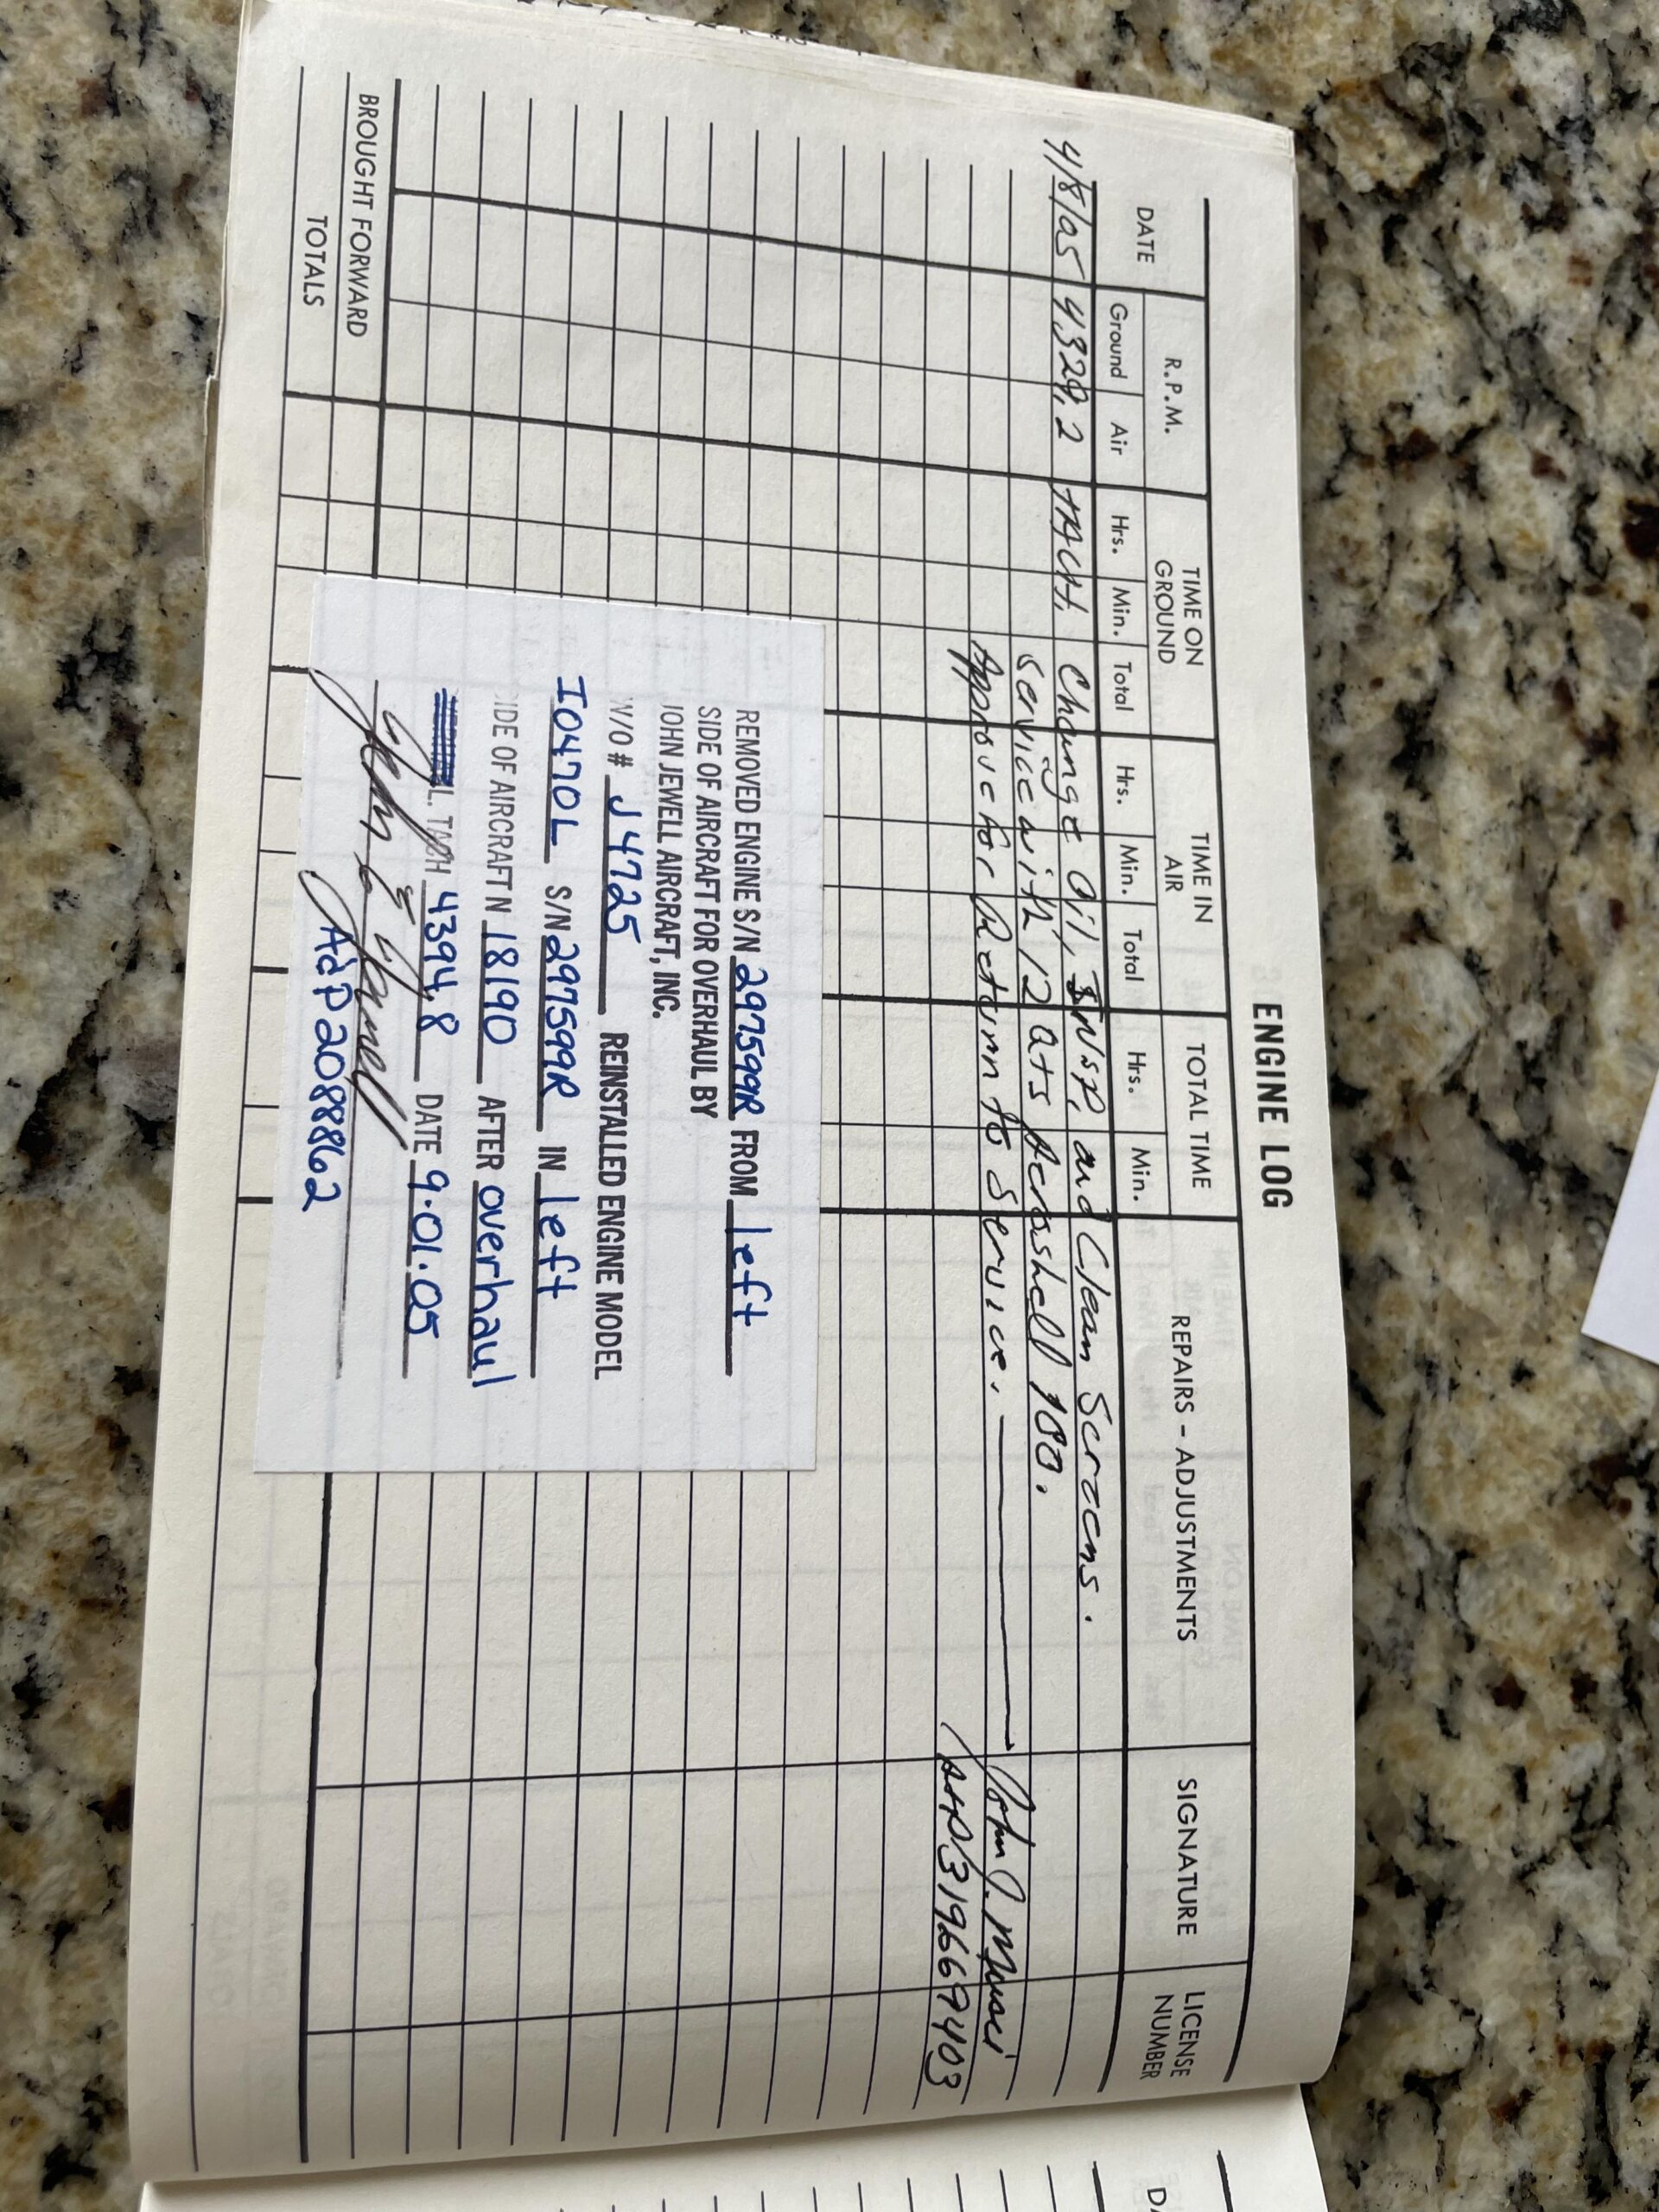 ENGINE LOG
DATE R.P.M. TIME ON GROUND TIME IN AIR TOTAL TIME REPAIRS – ADJUSTMENTS SIGNATURE LICENSE NUMBER
Ground Air Hrs. Min. Total Hrs. Min. Total Hrs. Min.
4/8/05 4329.2 TACH. Change Oil, INSP, and Clean Screens.
Service with 12 Qts Aeroshell 100.
Approve for Return to Service. John J. Musci
A+P 319669403
REMOVED ENGINE S/N 297599R FROM left
SIDE OF AIRCRAFT FOR OVERHAUL BY
JOHN JEWELL AIRCRAFT, INC.
W/O # J4725 REINSTALLED ENGINE MODEL
IO470L S/N 297599R IN left
IDE OF AIRCRAFT N 18190 AFTER overhaul
L. TACH 4394.8 DATE 9.01.05
A&P 2088862
BROUGHT FORWARD
TOTALS